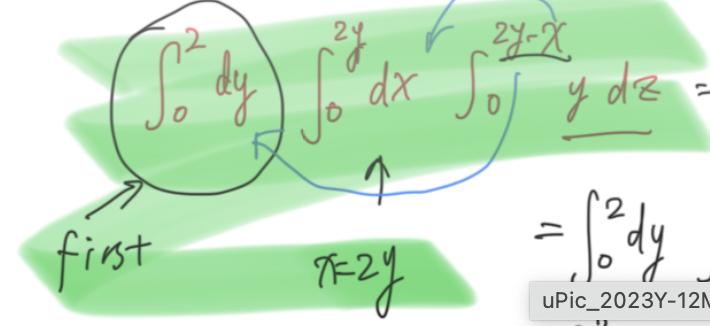 ∫₀² dy ∫₀^{2y} dx ∫₀^{2y-x} y dz =
first
x=2y
= ∫₀² dy
uPic_2023Y-12